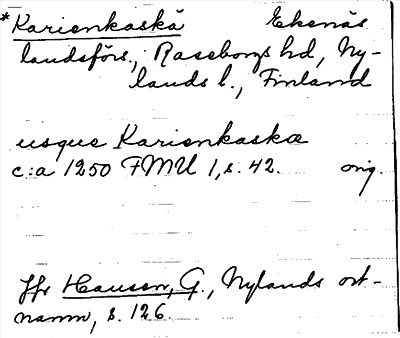 *Karienkaskä Ekenäs
landsförs., Raseborgs hd, Ny-
lands l., Finland
usque Karienkaskæ
c:a 1250 FMU 1, s. 42. orig.
Jfr Hausen, G., Nylands ort-
namn, s. 126.